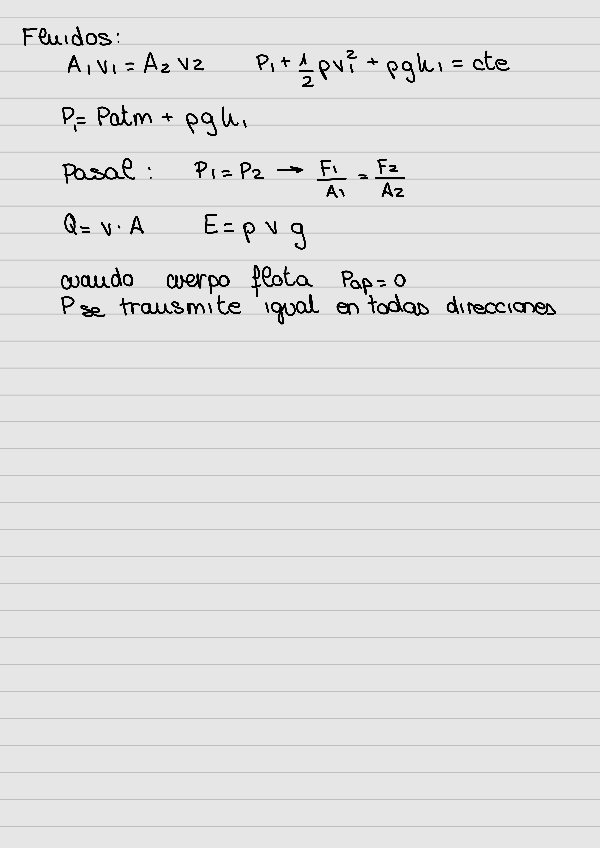 Fluidos:
A₁v₁ = A₂v₂ P₁ + 1/2 ρv₁² + ρgh₁ = cte
P₁ = Patm + ρgh₁
Pasal: P₁ = P₂ → F₁/A₁ = F₂/A₂
Q = v · A E = ρ v g
cuando cuerpo flota Pap = 0
P se transmite igual en todas direcciones